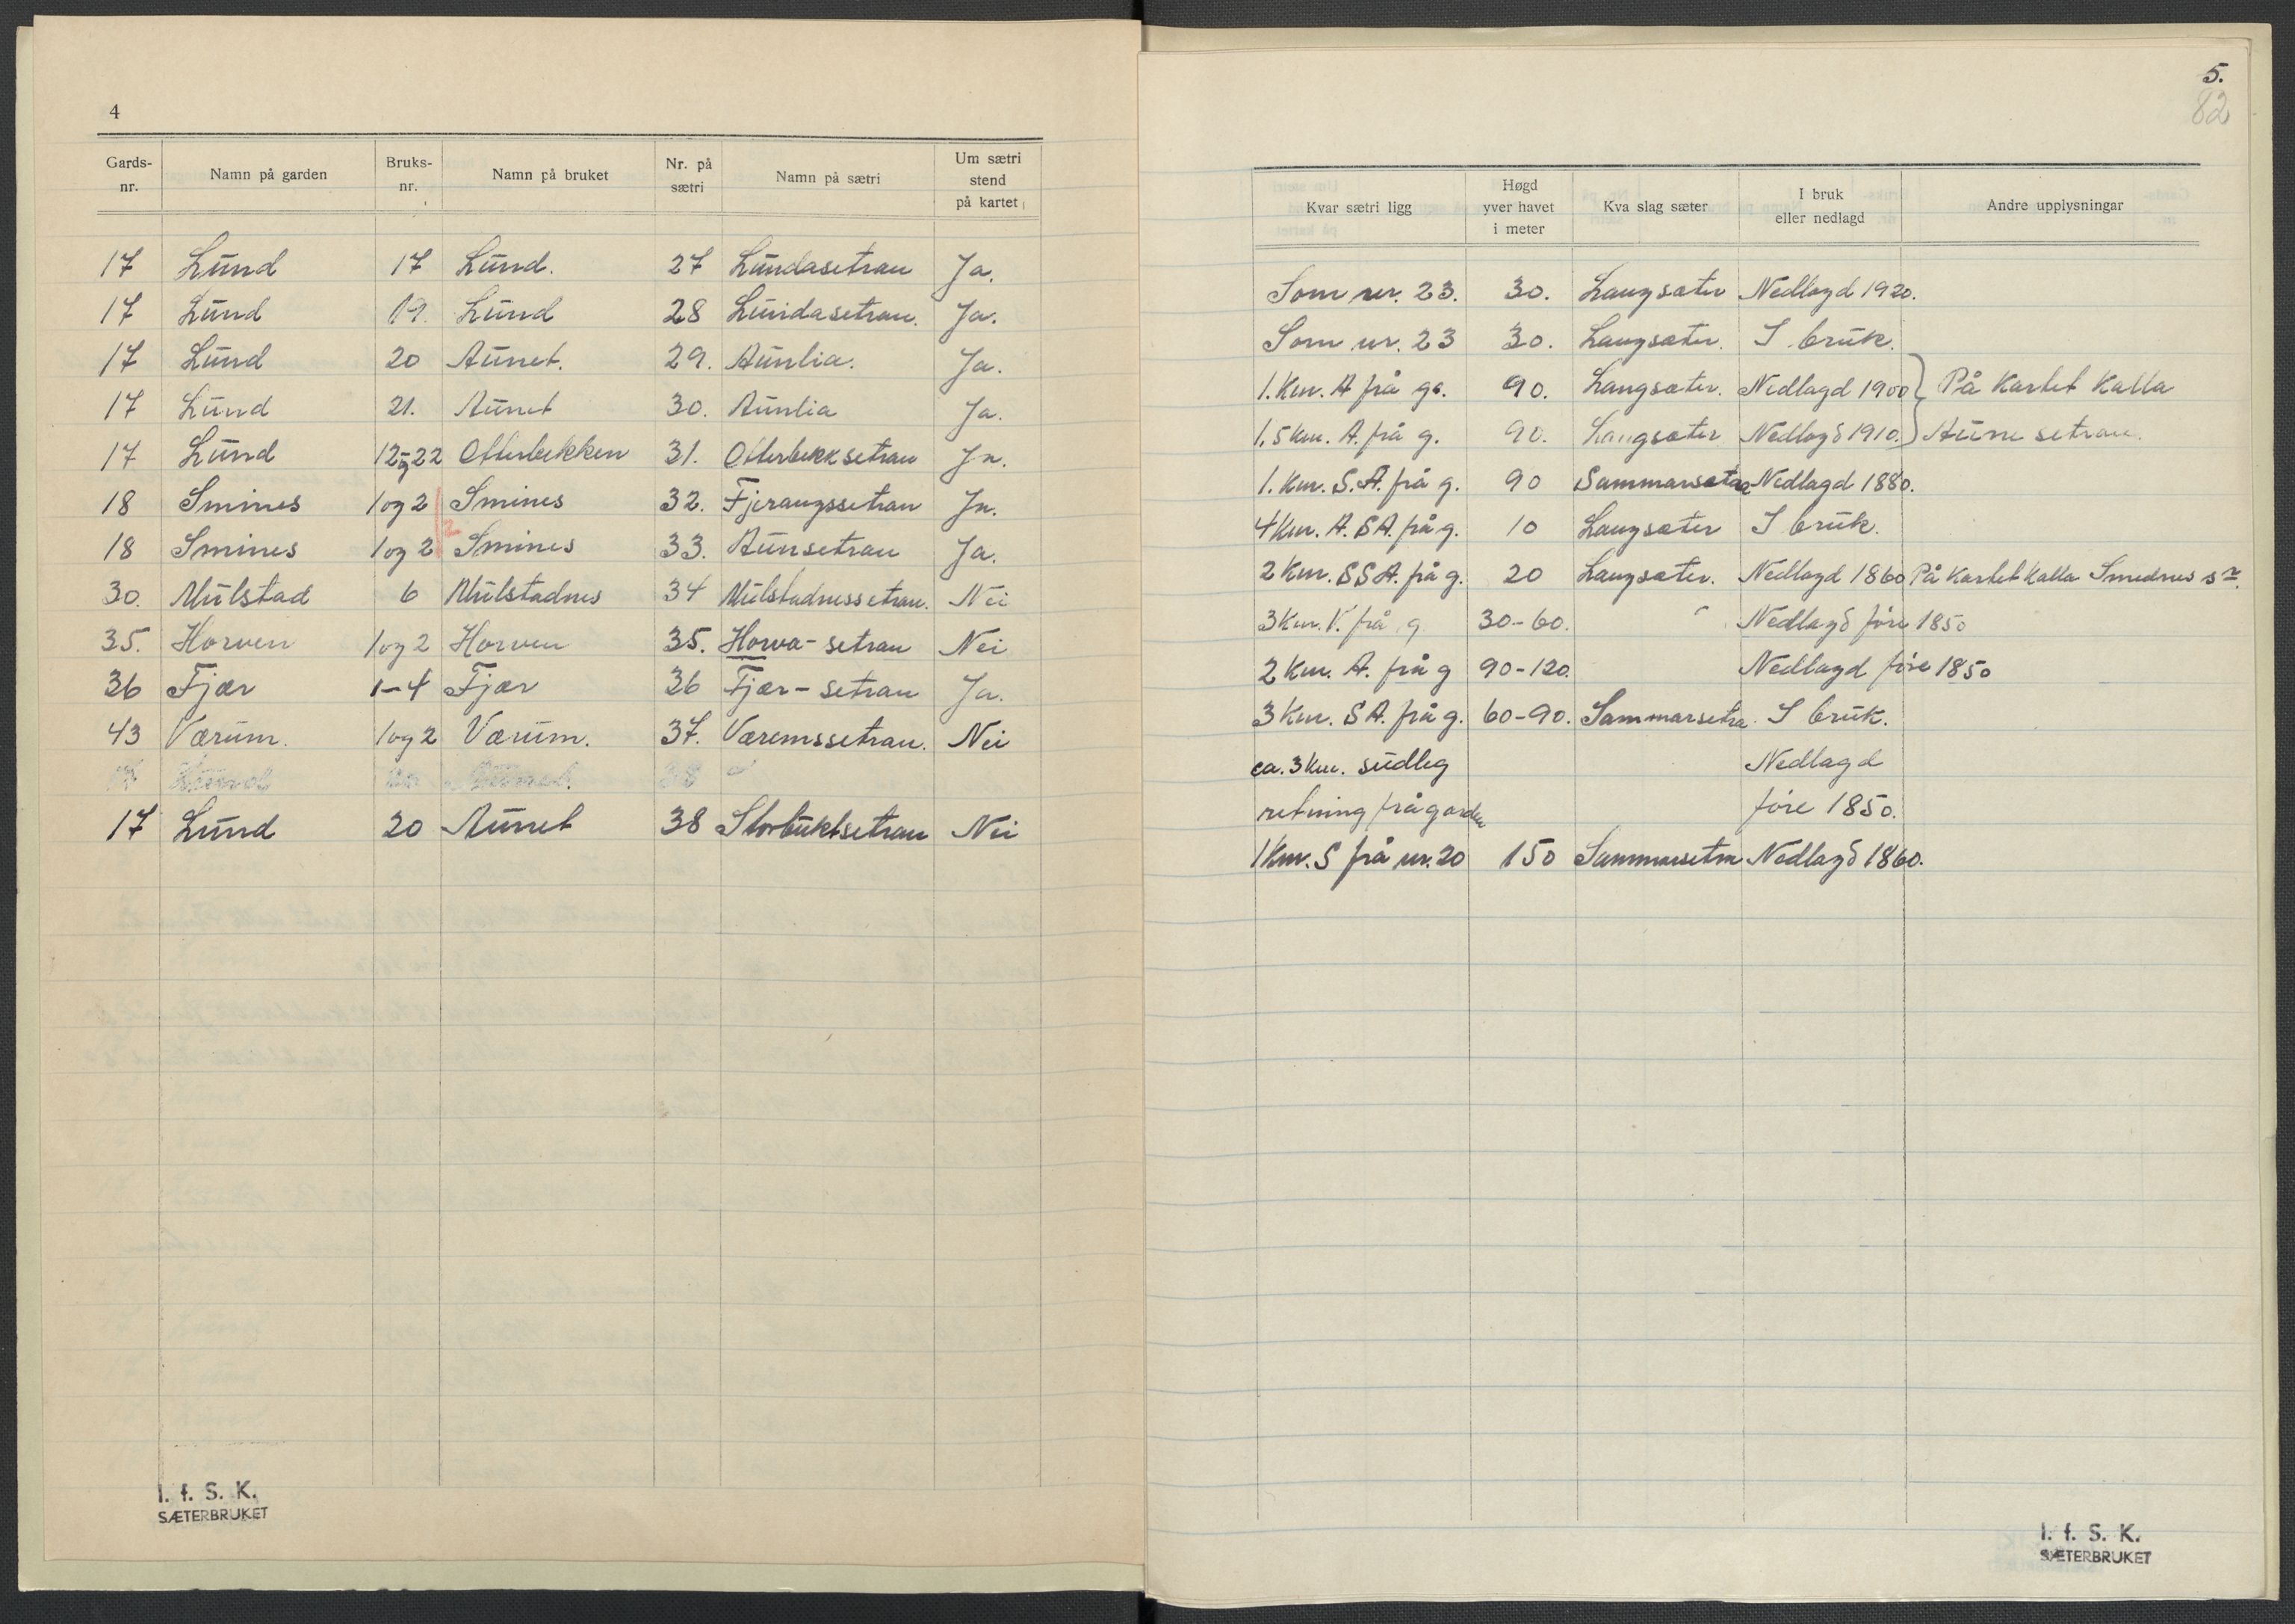 4
Gards-nr. Namn på garden Bruks-nr. Namn på bruket Nr. på sætri Namn på sætri Um sætri stend på kartet
17 Lund 17 Lund. 27 Lundasetran Ja.
17 Lund 19. Lund 28 Lundasetran. Ja.
17 Lund 20 Aunet. 29. Aunlia. Ja.
17 Lund 21. Aunet 30. Aunlia Ja.
17 Lund 12og22 Otterbekken 31. Otterbekksetran Ja.
18 Smines 1og2 Smines 32. Fjerangssetran Ja.
2
18 Smines 1og2 Smines 33. Aunsetran Ja.
30. Mulstad 6 Mulstadnes 34 Mulstadnessetran. Nei
35. Horven 1og2 Horven 35. Horva-setran Nei
36 Fjær 1-4 Fjær 36 Fjær-setran Ja.
43 Værum. 1og2 Værum. 37. Væremssetran. Nei
17 Lund 20 Aunet 38 Storbuktsetran Nei
I. f. S. K.
SÆTERBRUKET
5.
82
Kvar sætri ligg Høgd yver havet i meter Kva slag sæter I bruk eller nedlagd Andre upplysningar
Som nr. 23. 30. Langsæter Nedlagd 1920.
Som nr. 23 30. Langsæter. I bruk.
1. Km. A frå g. 90. Langsæter. Nedlagd 1900 } På Kartet Kalla
1,5 km. A. frå g. 90. Langsæter Nedlagd 1910. } Aunesetran.
1. Km. S.A. frå g. 90 Sammarsetra Nedlagd 1880.
4 Km. A.SA. frå g. 10 Langsæter I bruk.
2 Km. SSA. frå g. 20 Langsæter. Nedlagd 1860 På Kartet Kalla Smednes sr.
3 Km. V. frå g 30-60. " Nedlagd føre 1850
2 Km. A. frå g 90-120. Nedlagd føre 1850
3 Km. SA. frå g. 60-90. Sammarsetra. I bruk.
ca. 3 km. sudleg Nedlagd
retning frå garden føre 1850.
1 Km. S frå nr. 20 150 Sammarsetra Nedlagd 1860.
I. f. S. K.
SÆTERBRUKET